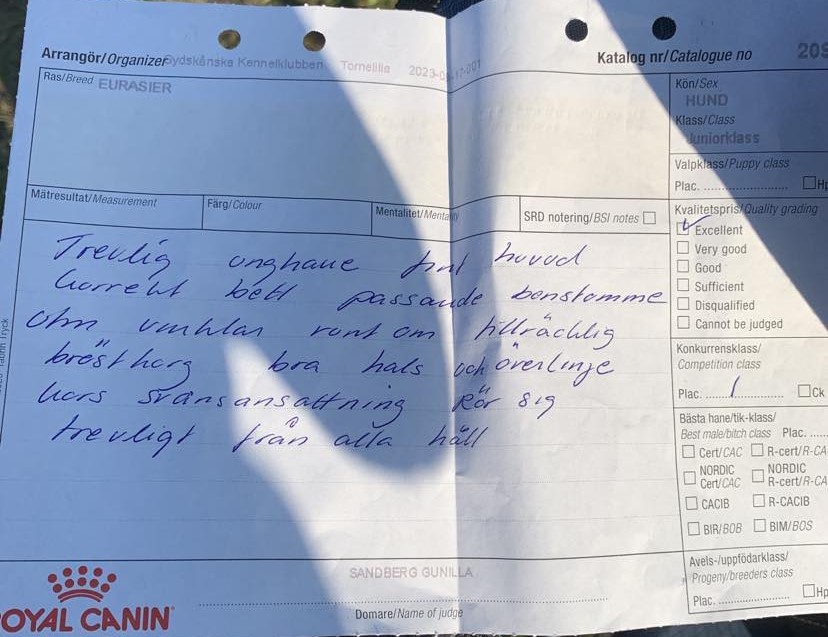 Arrangör/Organizer Sydskånska Kennelklubben Tomelilla
Katalog nr/Catalogue no 209
Ras/Breed EURASIER
Kön/Sex
HUND
Klass/Class
Juniorklass
Valpklass/Puppy class
Plac. ☐Hp
Mätresultat/Measurement
Färg/Colour
Mentalitet/Mentality
SRD notering/BSI notes ☐
Kvalitetspris/Quality grading
Excellent
Very good
Good
Sufficient
Disqualified
Cannot be judged
Trevlig unghane fint huvud
korrekt bett passande benstomme
ohm vinklar runt om tillräcklig
bröstkorg bra hals och överlinje
svansansättning Rör sig
trevligt från alla håll
Konkurrensklass/
Competition class
Plac. 1 ☐Ck
Bästa hane/tik-klass/
Best male/bitch class Plac.
Cert/CAC
R-cert/R-CA
NORDIC
Cert/CAC
NORDIC
R-cert/R-CA
CACIB
R-CACIB
BIR/BOB
BIM/BOS
Avels-/uppfödarklass/
Progeny/breeders class
Plac. ☐Hp
SANDBERG GUNILLA
Domare/Name of judge
OYAL CANIN